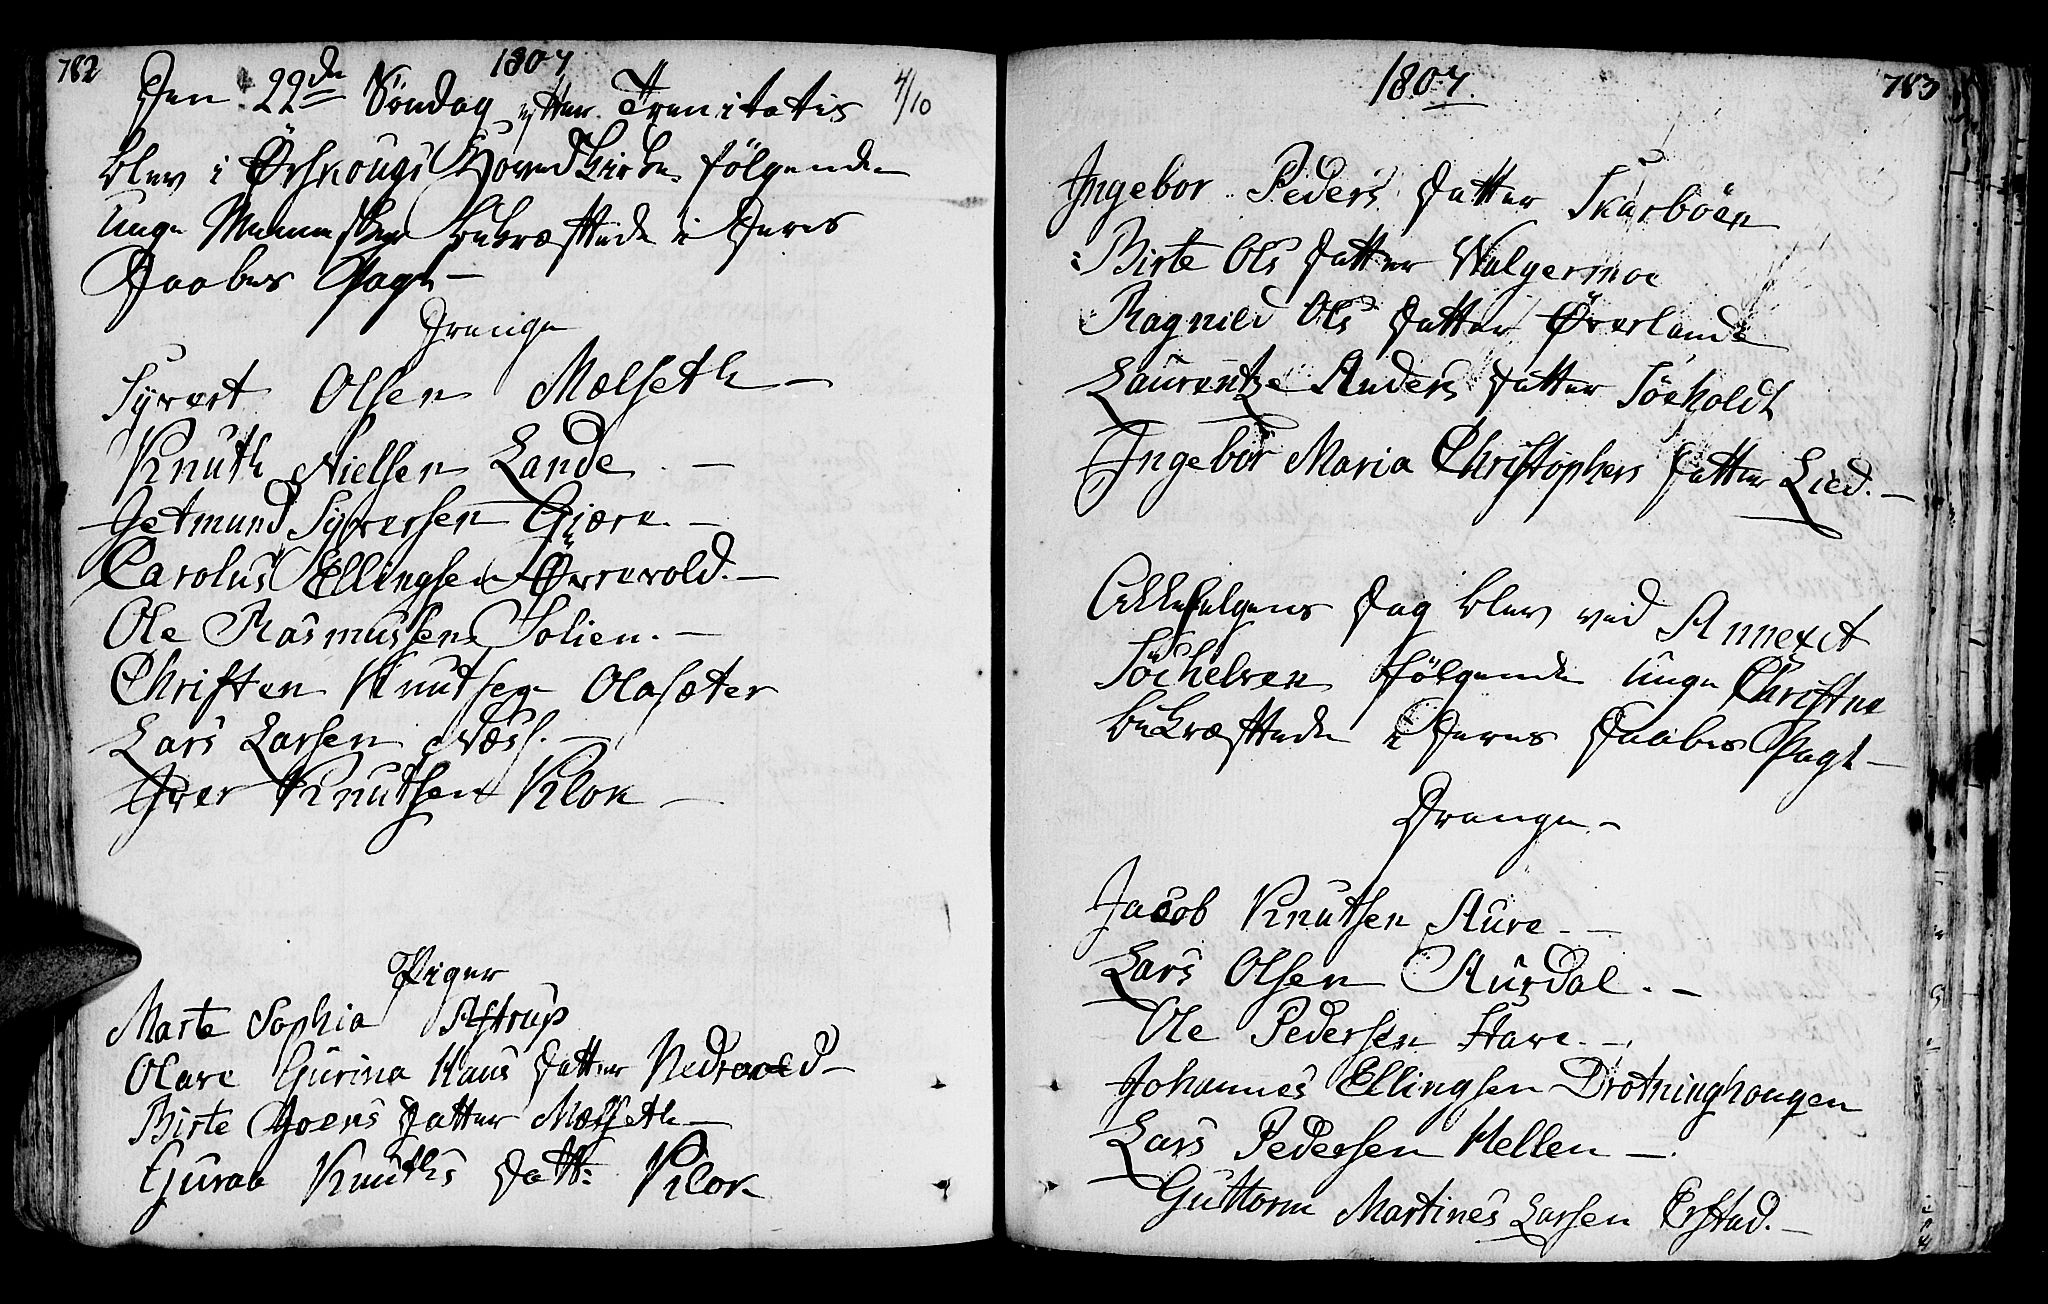 782
1807
Den 22de Söndag efter Trenitatis
4/10
blev i Örschougs Hoved Kirke følgende
unge Mennesker bekræftede i Deres
Daabes Pagt —
Drenge
Syvert Olsen Mælseth —
Knuth Nielsen Lande. —
Getmund Syversen Giære. —
Carolus Ellingsen Øvrevold. —
Ole Rasmussen Solien. —
Christen Knutsen Olasæter
Lars Larsen Næss. —
Iver Knutsen Klok —
Piger
Marte Sophia Astrup
Olave Gurina Hans Datter Nedrevold —
Birte Joens Datter Mælseth —
Gurae Knuths Datt: Klok
1807.
783
Ingebor Peders Datter Skarböen
Birte Ols Datter Walgermoe
Ragnild Ols Datter Øverlande
Laurentze Anders Datter Söeholdt
Ingebor Maria Christophers Datter Lied. —
Dag blev ved Annexet
Söchelven følgende unge Christne
bekræftede i Deres Daabes Pagt —
Drenge —
Jacob Knutsen Aure. —
Lars Olsen Aurdal. —
Ole Pedersen Hare. —
Johannes Ellingsen Drotninghougen
Lars Pedersen Hellen —
Guttorm Martines Larsen Erstad. —